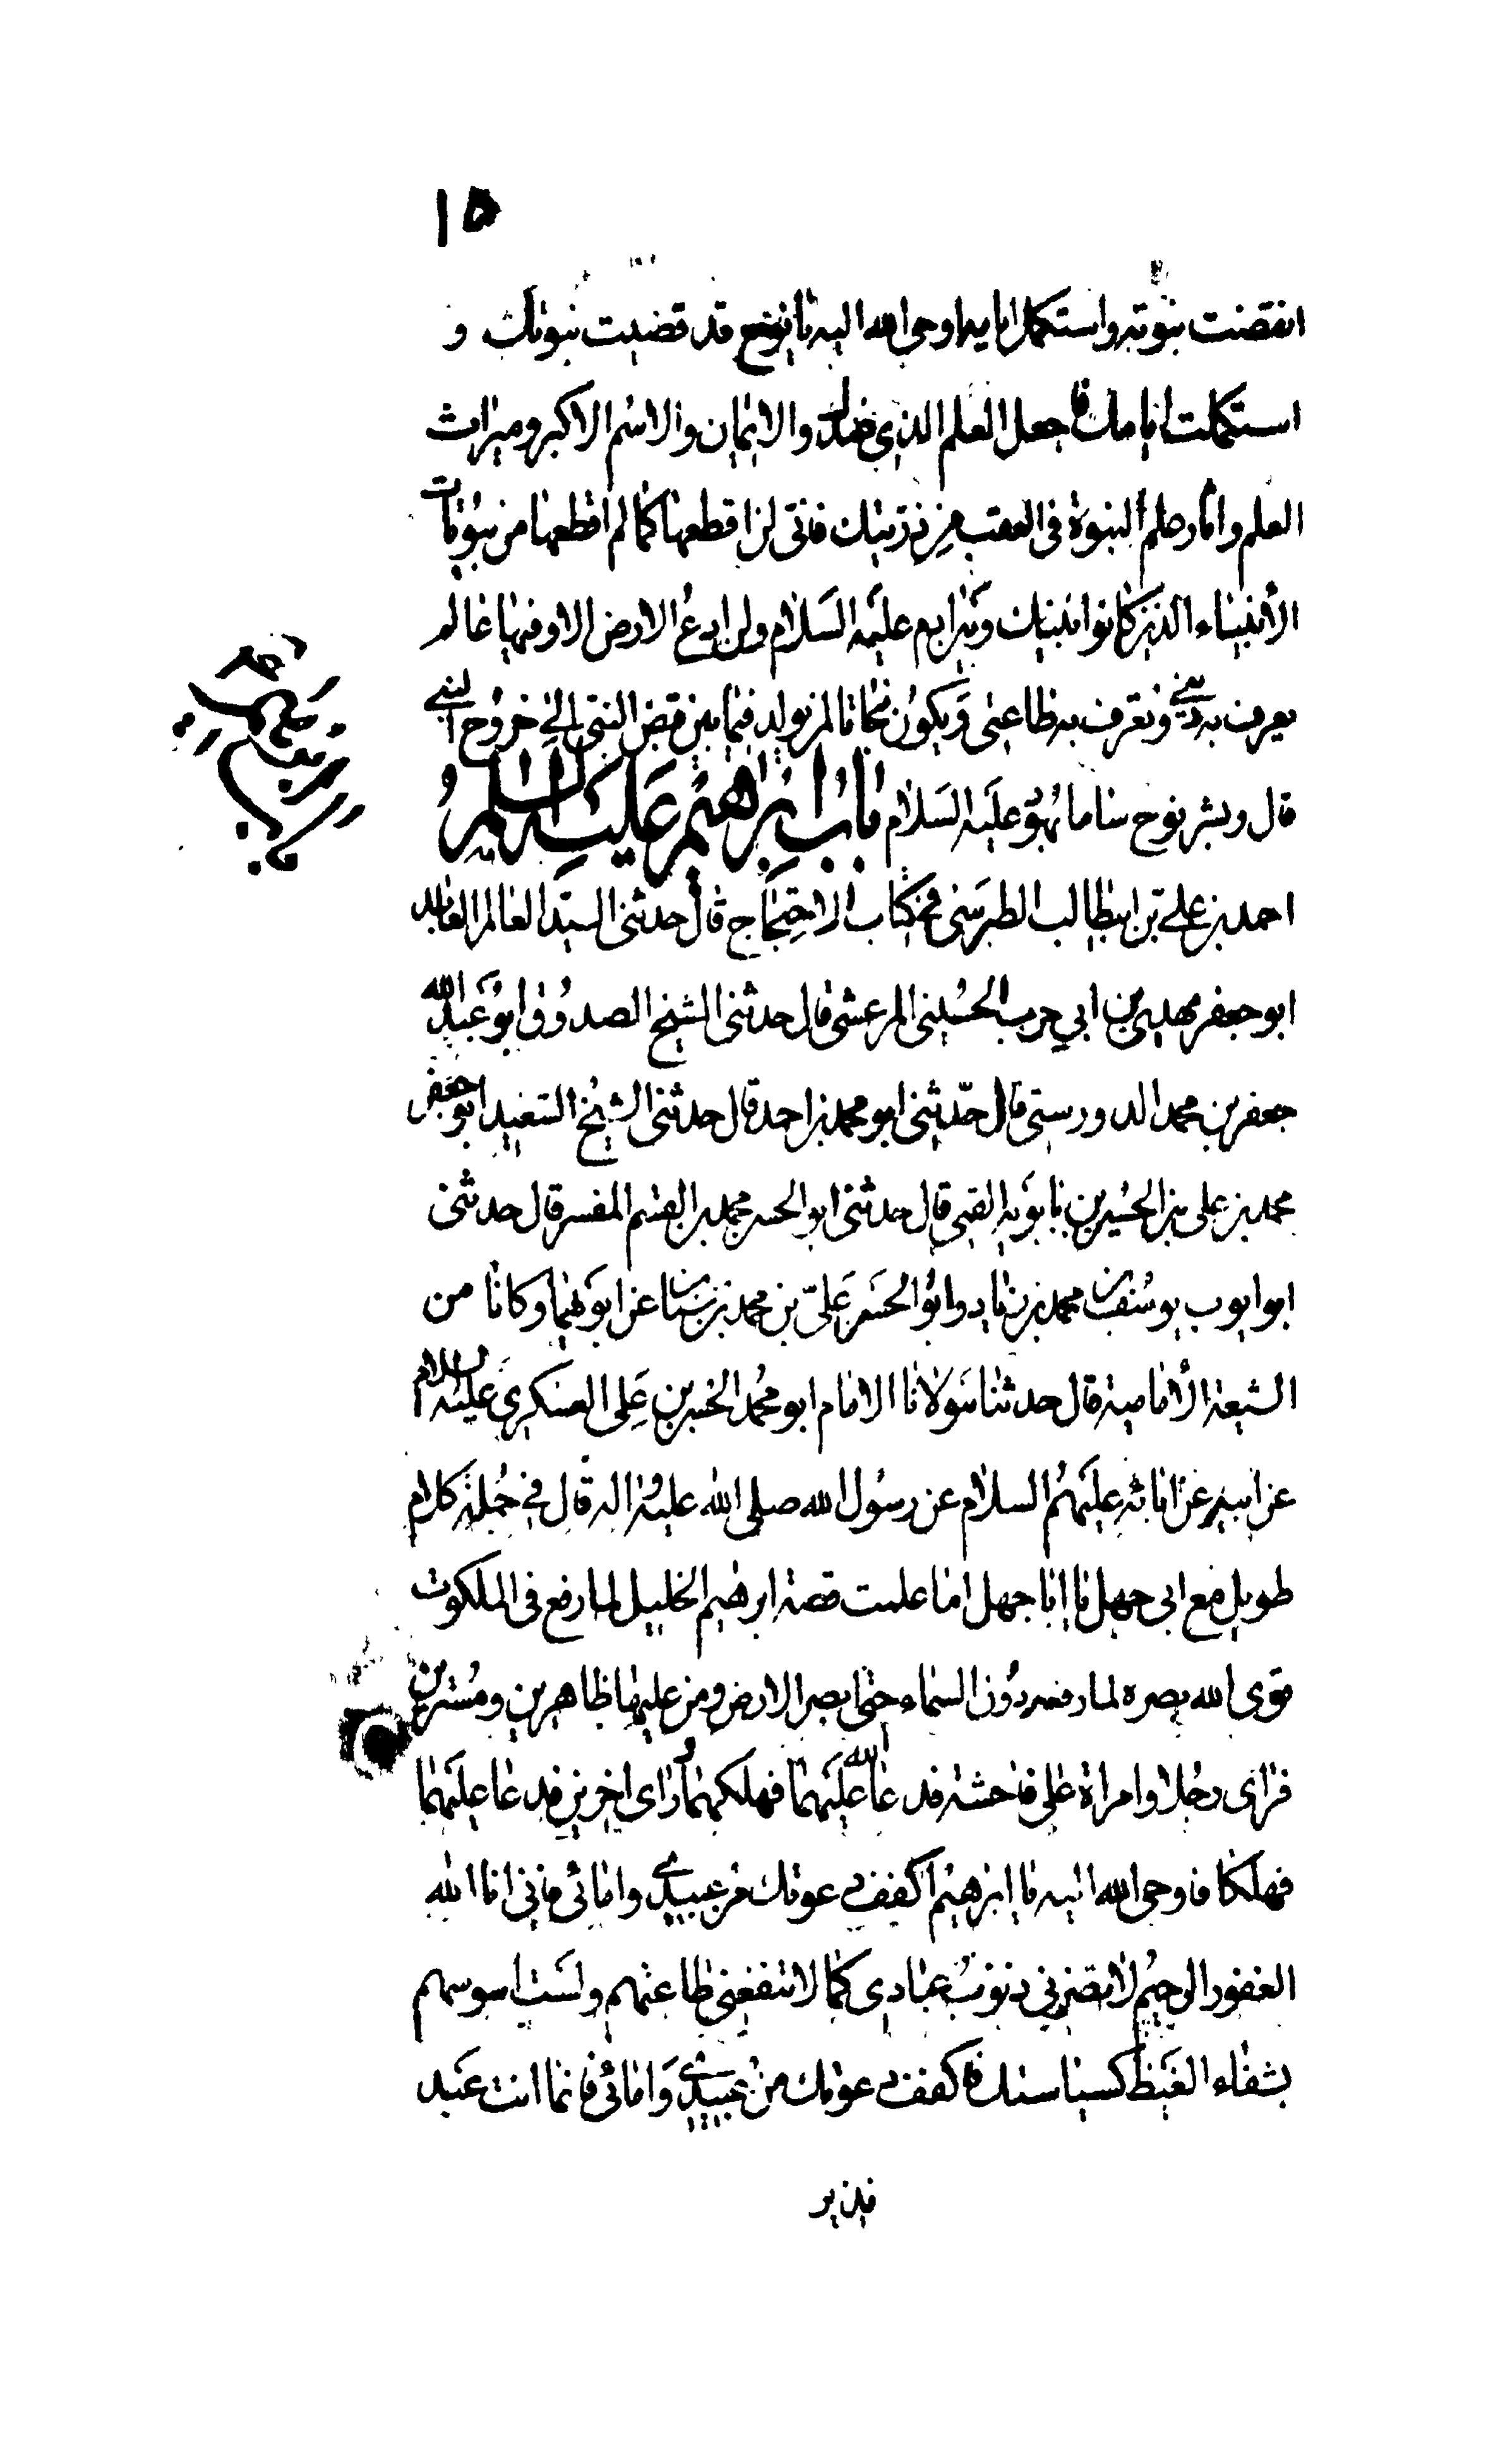 ١٥
انقضت نبوته واستكمل ايامه اوحى الله اليه يا نوح قد قضيت نبوتك و
استكملت ايامك فاجعل العلم الذي عندك والايمان والاسم الاكبر وميراث
العلم واثار علم النبوة في العقب من ذريتك فاني لن اقطعها كما لم اقطعها من بيوتات
الأنبياء الذين كانوا بينك وبين ادم عليه السلام ولن ادع الارض الا وفيها عالم
يعرف به ديني وتعرف به طاعتي ويكون نجاتا لمن يولد فيما بين قبض النبي الى خروج النبي
قال وبشر نوح ساما بهود عليه السلام باب ابرهيم عليه السلم
احمد بن علي بن ابيطالب الطبرسي في كتاب الاحتجاج قال حدثني السيد العالم العابد
ابو جعفر مهدي بن ابي حرب الحسيني المرعشي قال حدثني الشيخ الصدوق ابو عبد الله
جعفر بن محمد الدورستي قال حدّثني ابو محمد بن احمد قال حدثني الشيخ السعيد ابو جعفر
محمد بن علي بن الحسين بن بابويه القمي قال حدثني ابو الحسن محمد بن القسم المفسر قال حدثني
ابو ايوب يوسف بن محمد بن زياد وابو الحسن عليّ بن محمد بن سنان عن ابويهما وكانا من
الشيعة الأمامية قال حدثنا مولانا الامام ابو محمد الحسن بن علي العسكري عليه السلام
عن ابيه عن ابائه عليهم السلام عن رسول الله صلى الله عليه واله قال في جملة كلام
طويل مع ابي جهل يا ابا جهل اما علمت قصة ابرهيم الخليل لما رفع في الملكوت
قوى الله بصره لما رفعه دون السماء حتى بصر الارض ومن عليها ظاهرين ومستترين
فراى رجلا وامراة على فاحشة فدعا الله عليهما فهلكهما وراى اخرين فدعا عليهما
فهلكا فاوحى الله اليه يا ابرهيم اكفف دعوتك من عبيدي وامائي فاني انا الله
الغفور الرحيم لا تضرني ذنوب عبادي كما لا تنفعني طاعتهم ولست اسوسهم
بشفاء الغيظ كسياستك فاكفف دعوتك من عبيدي وامائي فانما انت عبد
نذير